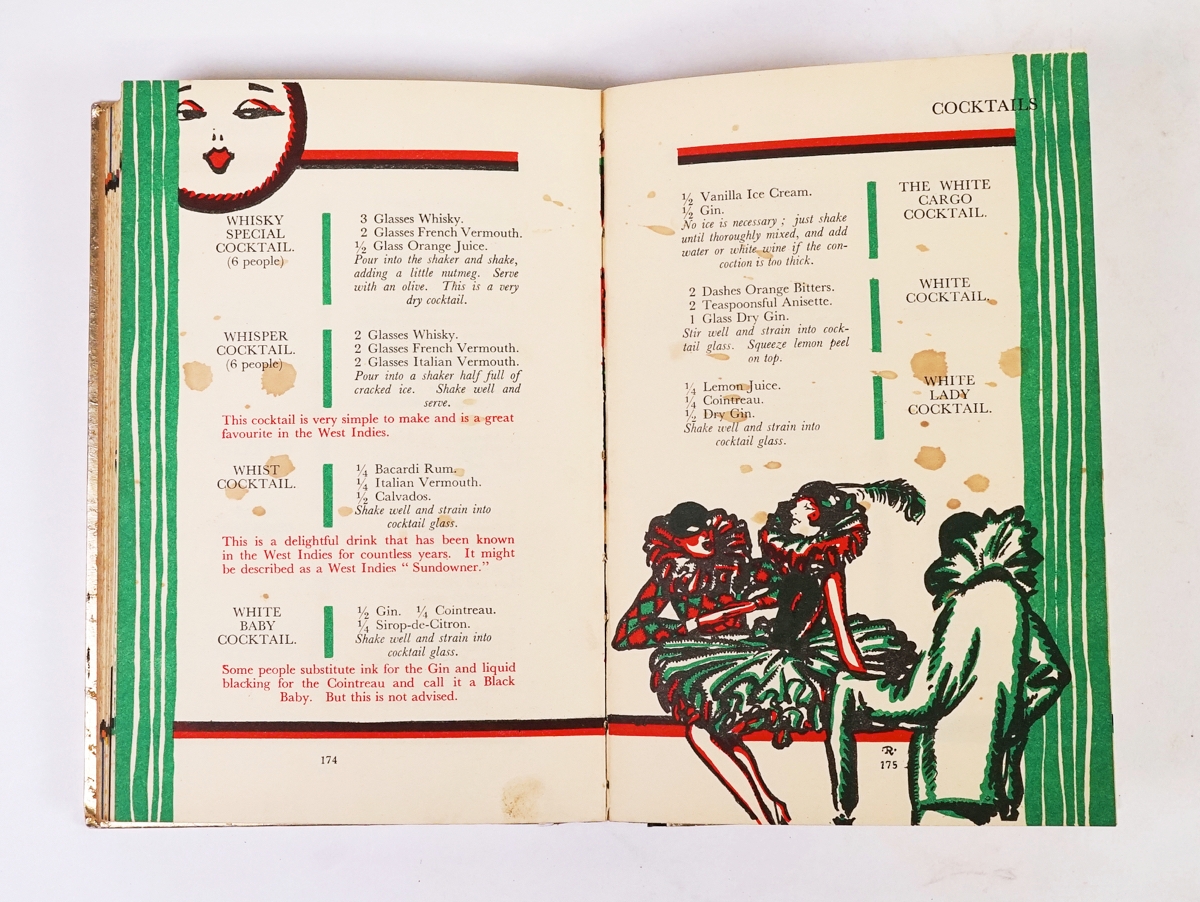 WHISKY
SPECIAL
COCKTAIL.
(6 people)
3 Glasses Whisky.
2 Glasses French Vermouth.
½ Glass Orange Juice.
Pour into the shaker and shake,
adding a little nutmeg. Serve
with an olive. This is a very
dry cocktail.
WHISPER
COCKTAIL.
(6 people)
2 Glasses Whisky.
2 Glasses French Vermouth.
2 Glasses Italian Vermouth.
Pour into a shaker half full of
cracked ice. Shake well and
serve.
This cocktail is very simple to make and is a great
favourite in the West Indies.
WHIST
COCKTAIL.
¼ Bacardi Rum.
¼ Italian Vermouth.
½ Calvados.
Shake well and strain into
cocktail glass.
This is a delightful drink that has been known
in the West Indies for countless years. It might
be described as a West Indies “ Sundowner.”
WHITE
BABY
COCKTAIL.
½ Gin. ¼ Cointreau.
¼ Sirop-de-Citron.
Shake well and strain into
cocktail glass.
Some people substitute ink for the Gin and liquid
blacking for the Cointreau and call it a Black
Baby. But this is not advised.
174
COCKTAILS
½ Vanilla Ice Cream.
½ Gin.
No ice is necessary ; just shake
until thoroughly mixed, and add
water or white wine if the con-
coction is too thick.
THE WHITE
CARGO
COCKTAIL.
2 Dashes Orange Bitters.
2 Teaspoonsful Anisette.
1 Glass Dry Gin.
Stir well and strain into cock-
tail glass. Squeeze lemon peel
on top.
WHITE
COCKTAIL.
¼ Lemon Juice.
¼ Cointreau.
½ Dry Gin.
Shake well and strain into
cocktail glass.
WHITE
LADY
COCKTAIL.
R.
175